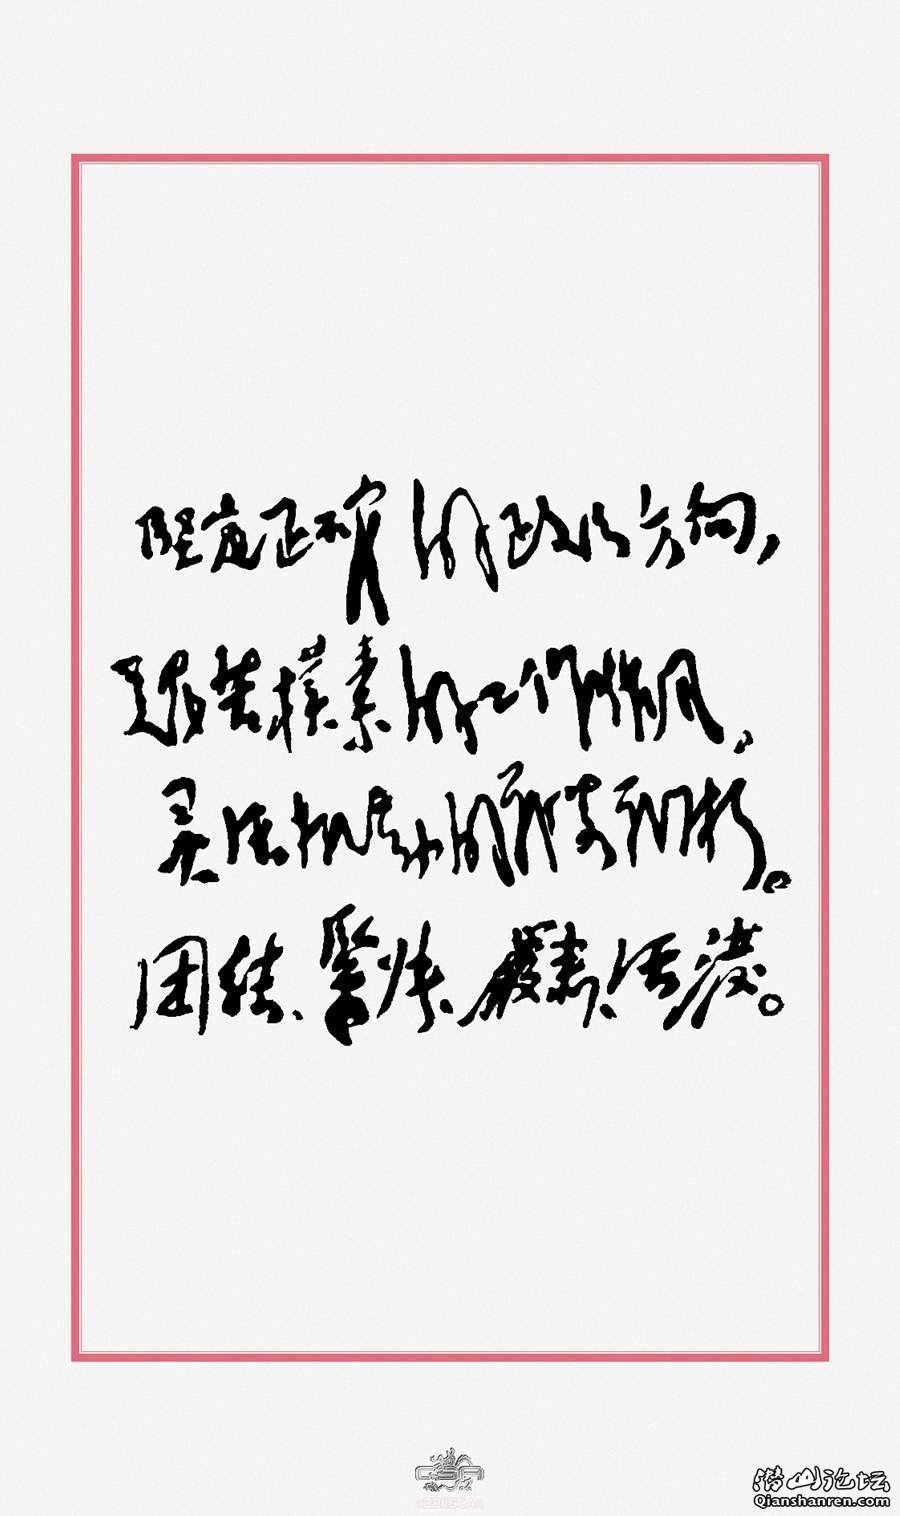 坚定正确的政治方向，
艰苦朴素的工作作风，
灵活机动的战略战术。
团结、紧张、严肃、活泼。
CSA
潜山论坛
Qianshanren.com